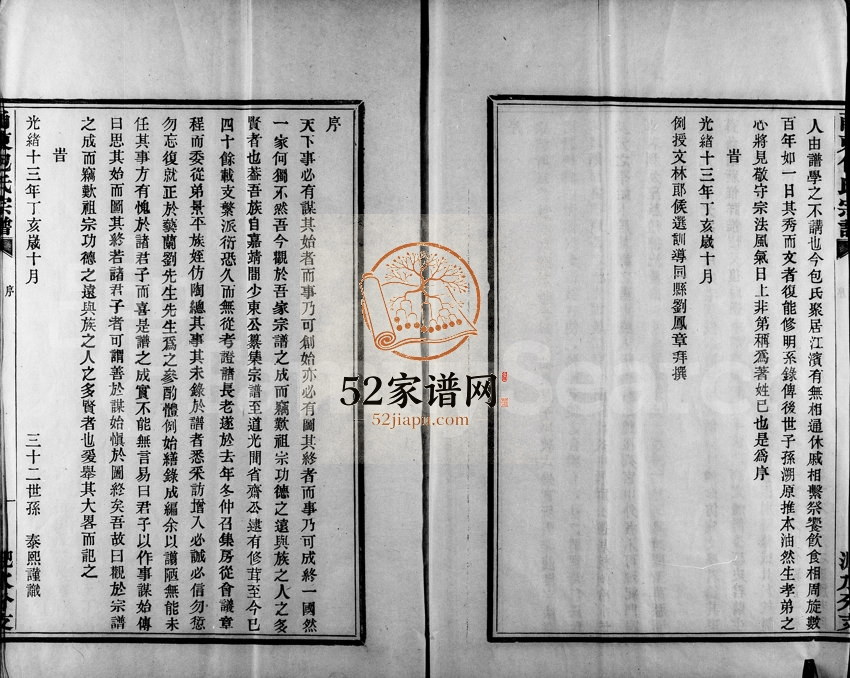 人由譜學之不講也今包氏聚居江濱有無相通休戚相繫祭饗飲食相周旋數
百年如一日其秀而文者復能修明系錄俾後世子孫溯原推本油然生孝弟之
心將見敬守宗法風氣日上非第稱為著姓已也是為序
旹
光緒十三年丁亥歲十月
例授文林郎候選訓導同縣劉鳳章拜撰
序
天下事必有謀其始者而事乃可創始亦必有圖其終者而事乃可成終一國然
一家何獨不然吾今觀於吾家宗譜之成而竊歎祖宗功德之遠與族之人之多
賢者也蓋吾族自嘉靖間少東公纂集宗譜至道光間省齋公建有修茸至今已
四十餘載支繁派衍恐久而無從考證諸長老遂於去年冬仲召集房從會議章
程而委從弟景平族姪仿陶總其事其未錄於譜者悉采訪增入必誠必信勿愆
勿忘復就正於藝蘭劉先生先生為之參酌體例始繕錄成編余以譾陋無能未
任其事方有愧於諸君子而喜是譜之成實不能無言易曰君子以作事謀始傳
曰思其始而圖其終若諸君子者可謂善於謀始慎於圖終矣吾故曰觀於宗譜
之成而竊歎祖宗功德之遠與族之人之多賢者也爰舉其大畧而記之
旹
光緒十三年丁亥歲十月
三十二世孫 泰熙謹識
氏宗譜
序
一
52家谱网
52jiapu.com